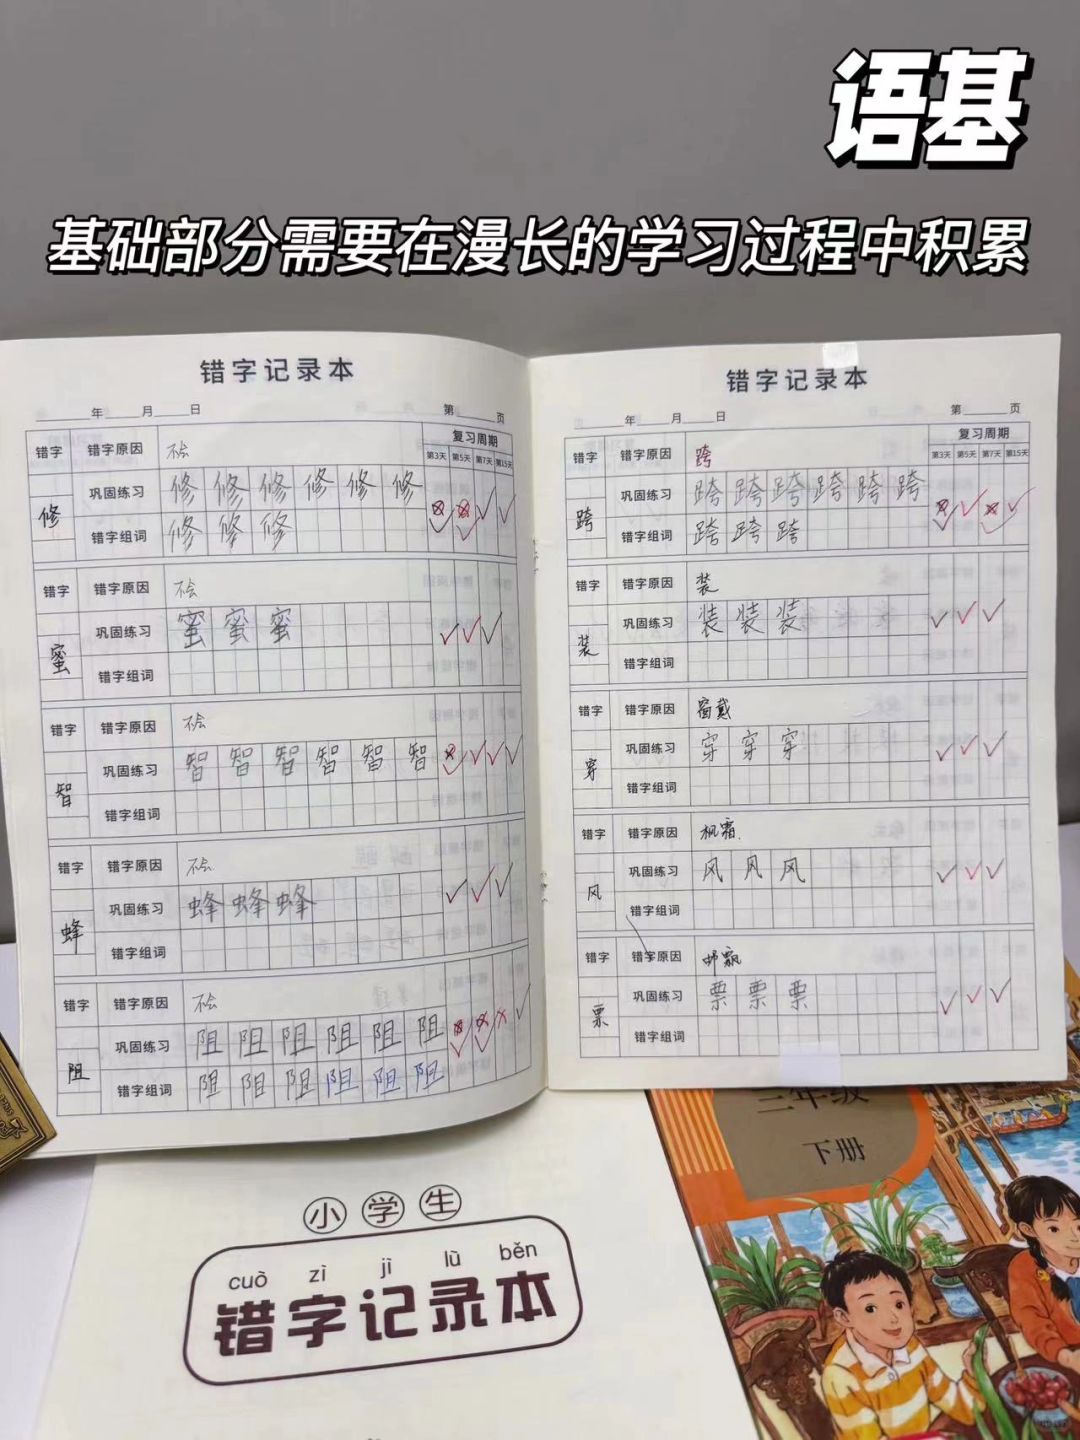 语基
基础部分需要在漫长的学习过程中积累
错字记录本
年 月 日 第 页
错字 错字原因 不会 复习周期
第3天 第5天 第7天 第15天
修 巩固练习 修 修 修 修 修 修
错字组词 修 修 修
错字 错字原因 不会
蜜 巩固练习 蜜 蜜 蜜
错字组词
错字 错字原因 不会
智 巩固练习 智 智 智 智 智 智
错字组词
错字 错字原因 不会
蜂 巩固练习 蜂 蜂 蜂
错字组词
错字 错字原因 不会
阻 巩固练习 阻 阻 阻 阻 阻 阻
错字组词 阻 阻 阻 阻 阻 阻
错字记录本
年 月 日 第 页
错字 错字原因 跨 复习周期
第3天 第5天 第7天 第15天
跨 巩固练习 跨 跨 跨 跨 跨 跨
错字组词 跨 跨 跨
错字 错字原因 装
装 巩固练习 装 装 装
错字组词
错字 错字原因
穿 巩固练习 穿 穿 穿
错字组词
错字 错字原因 枫霜
风 巩固练习 风 风 风
错字组词
错字 错字原因
票 巩固练习 票 票 票
错字组词
小学生
cuò zì jì lù běn
错字记录本
三年级
下册